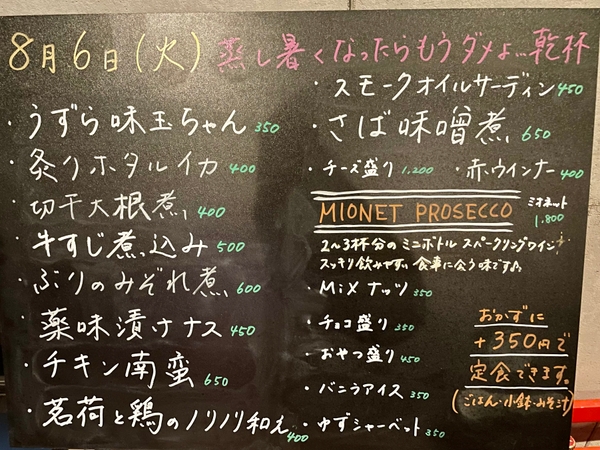 8月6日(火) 蒸し暑くなったらもうダメよ…乾杯
・うずら味玉ちゃん 350
・炙りホタルイカ 400
・切干大根煮 400
・牛すじ煮込み 500
・ぶりのみぞれ煮 600
・薬味漬けナス 450
・チキン南蛮 650
・茗荷と鶏のノリノリ和え 400
・スモークオイルサーディン 450
・さば味噌煮 650
・チーズ盛り 1,200 ・赤ウインナー 400
MIONET PROSECCO ミオネット 1,800
2~3杯分のミニボトル スパークリングワイン
スッキリ飲みやすい 食事に合う味です♪
・MiXナッツ 350
・チョコ盛り 350
・おやつ盛り 450
・バニラアイス 350
・ゆずシャーベット 350
おかずに
+350円で
定食できます。
(ごはん・小鉢・みそ汁)